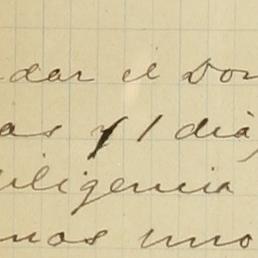 dar el Don
as y 1 dia,
iligencia
nos uno